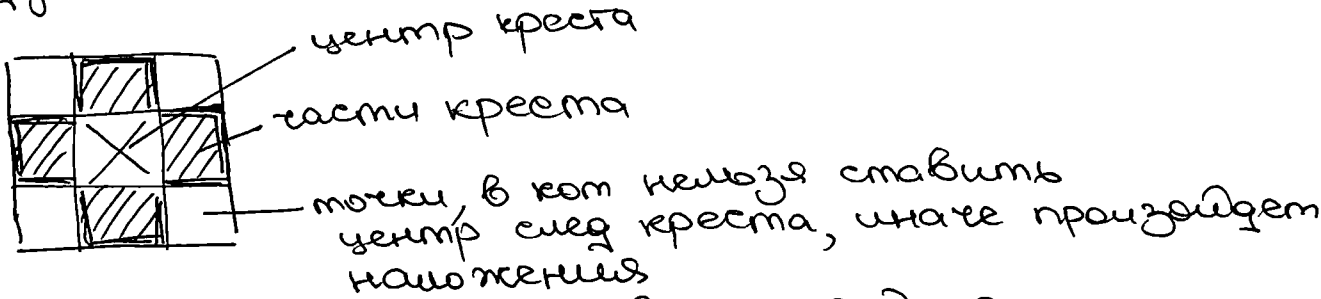 центр креста
части креста
точки, в кот нельзя ставить
центр след креста, иначе произойдет
наложения